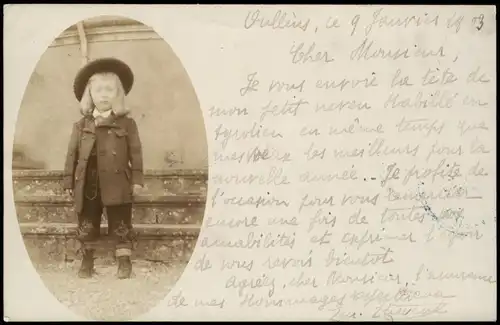 Oullins, le 9 Janvier 1903
Cher Monsieur,
Je vous envoie la tête de
mon petit neveu habillé en
tyrolien en même temps que
mes vœux les meilleurs pour la
nouvelle année. Je profite de
l'occasion pour vous remercier
encore une fois de toutes vos
amabilités et exprimer l'espoir
de vous revoir bientôt.
Agréez, cher Monsieur, l'assurance
de mes hommages